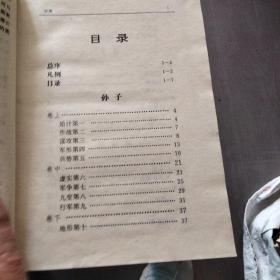 目录
总序 1—4
凡例 1—2
目录
孙子
卷上 4
始计第一 4
作战第二
谋攻第三
军形第四
兵势第五
卷中 21
虚实第六 21
军争第七 25
九变第八 29
行军第九
卷下 37
地形第十 37